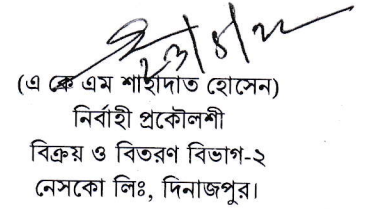 ২৩/৮/২২
(এ কে এম শাহাদাত হোসেন)
নির্বাহী প্রকৌশলী
বিক্রয় ও বিতরণ বিভাগ-২
নেসকো লিঃ, দিনাজপুর।